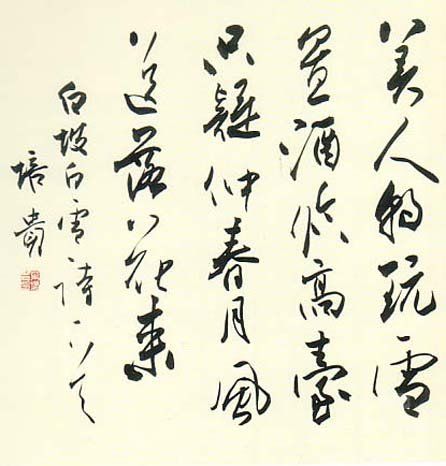 美人玩雪
置酒臨高臺
只疑仲春月風
送落花來
白坡白雪詩一首
培貴